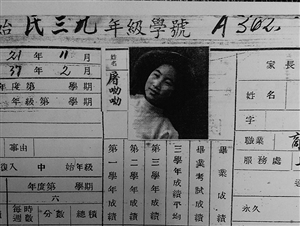 始民三九年級學號 A 362
21 年 11 月
37 年 2 月
年度第 學期
年級第 學期
姓名 屠呦呦
家長
姓名
字
職業 商
服務處
永久
事由
復入 中 始年級
年度第 學期
六
每時週數 分數 總積
第一學年成績
第二學年成績
第三學年成績
三學年成績平均
畢業考試成績
畢業成績